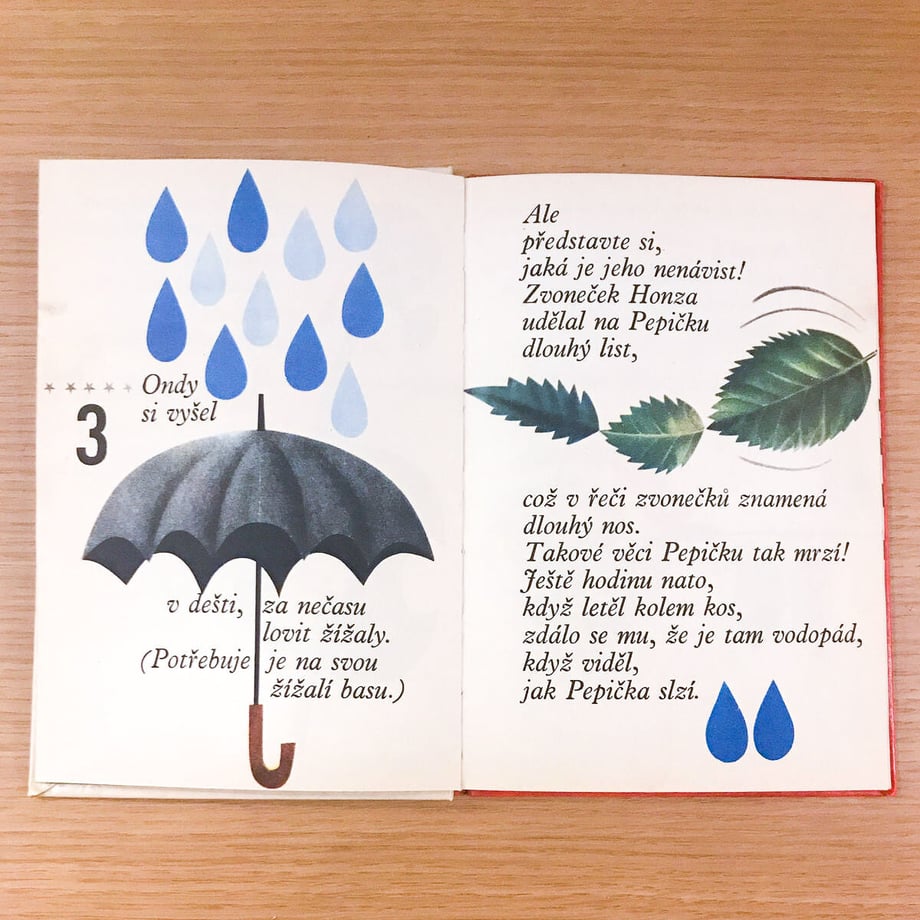 3
Ondy
si vyšel
v dešti, za nečasu
lovit žížaly.
(Potřebuje je na svou
žížalí basu.)
Ale
představte si,
jaká je jeho nenávist!
Zvoneček Honza
udělal na Pepičku
dlouhý list,
což v řeči zvonečků znamená
dlouhý nos.
Takové věci Pepičku tak mrzí!
Ještě hodinu nato,
když letěl kolem kos,
zdálo se mu, že je tam vodopád,
když viděl,
jak Pepička slzí.